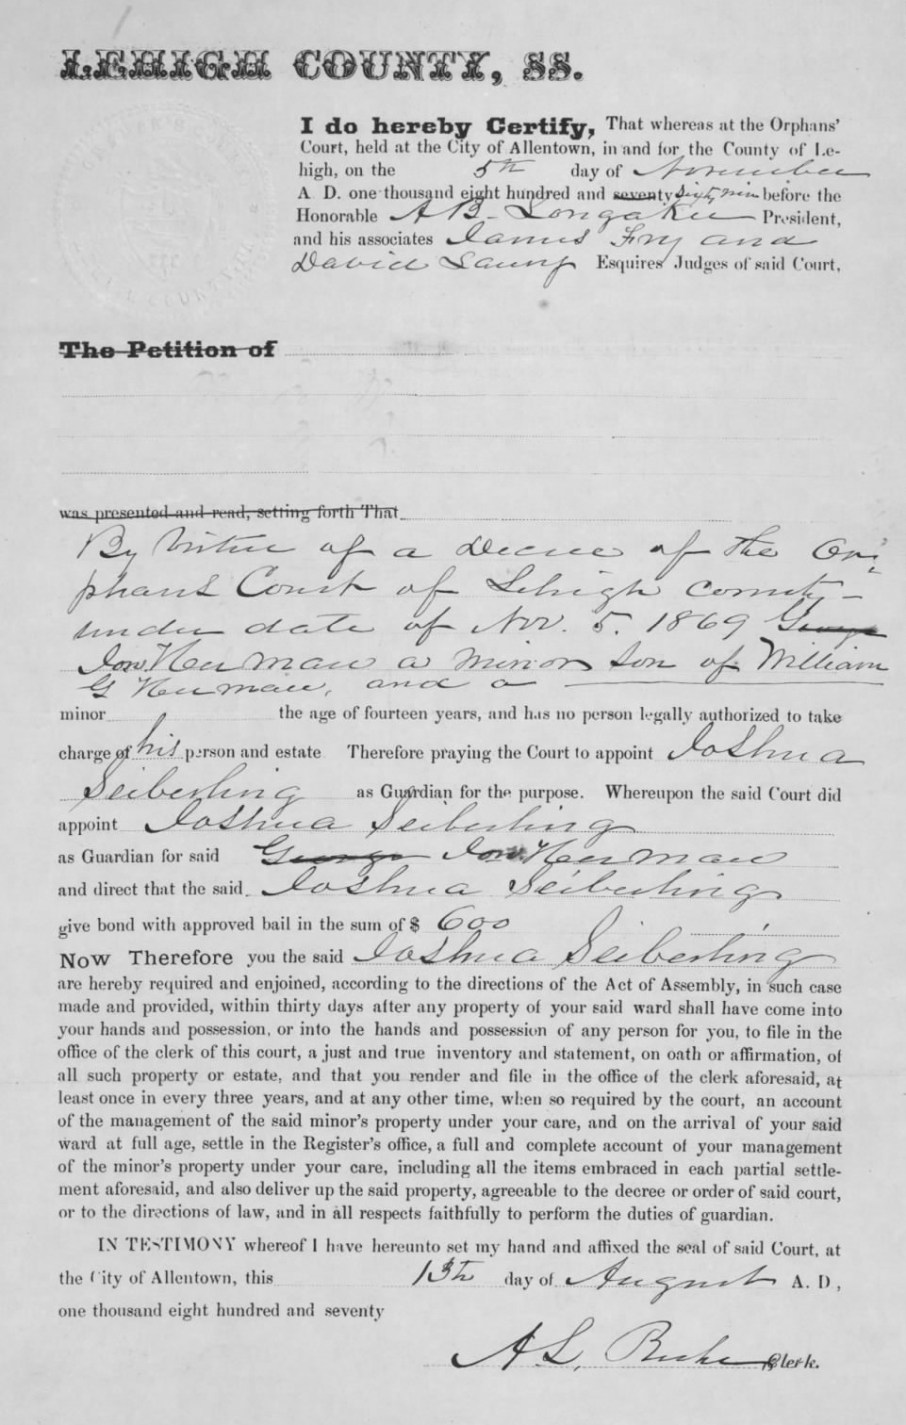 LEHIGH COUNTY, SS.
I do hereby Certify, That whereas at the Orphans'
Court, held at the City of Allentown, in and for the County of Le-
high, on the 5th day of November
A D. one thousand eight hundred and seventy sixty nin before the
Honorable A B. Longaker President,
and his associates James Fry and
David Laury Esquires Judges of said Court,
The Petition of
was presented and read, setting forth That
By virtue of a Decree of the Or-
phans Court of Lehigh County
under date of Nov. 5. 1869 George
Neuman a minor son of William
G Neuman, and a
minor the age of fourteen years, and has no person legally authorized to take
charge of his person and estate Therefore praying the Court to appoint Joshua
Seiberling as Guardian for the purpose. Whereupon the said Court did
appoint Joshua Seiberling
as Guardian for said George Neuman
and direct that the said Joshua Seiberling
give bond with approved bail in the sum of $ 600
Now Therefore you the said Joshua Seiberling
are hereby required and enjoined, according to the directions of the Act of Assembly, in such case
made and provided, within thirty days after any property of your said ward shall have come into
your hands and possession, or into the hands and possession of any person for you, to file in the
office of the clerk of this court, a just and true inventory and statement, on oath or affirmation, of
all such property or estate, and that you render and file in the office of the clerk aforesaid, at
least once in every three years, and at any other time, when so required by the court, an account
of the management of the said minor's property under your care, and on the arrival of your said
ward at full age, settle in the Register's office, a full and complete account of your management
of the minor's property under your care, including all the items embraced in each partial settle-
ment aforesaid, and also deliver up the said property, agreeable to the decree or order of said court,
or to the directions of law, and in all respects faithfully to perform the duties of guardian.
IN TESTIMONY whereof I have hereunto set my hand and affixed the seal of said Court, at
the City of Allentown, this 13th day of August A. D,
one thousand eight hundred and seventy
A L. Ruhe Clerk.